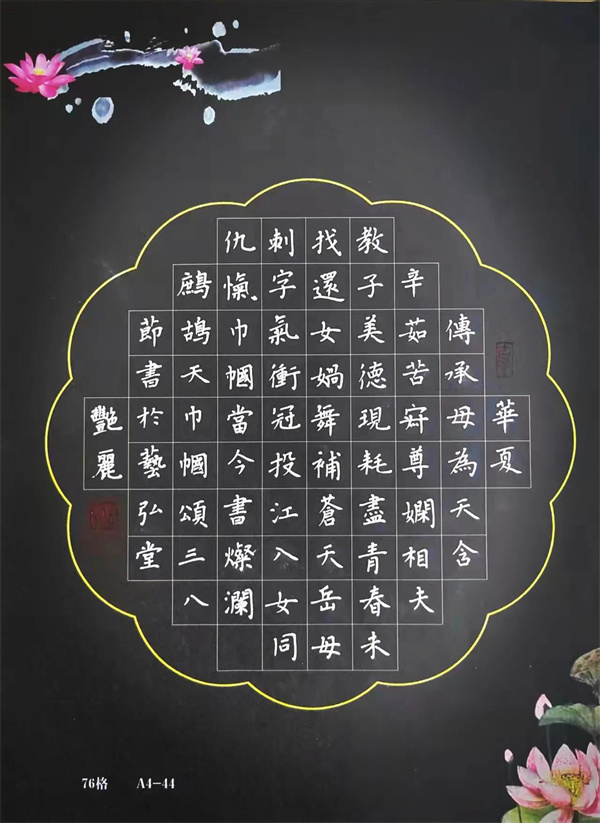 華夏
傳承母為天含
辛茹苦尊嫻相夫
教子美德現耗盡青春未
找還女媧舞補蒼天岳母
刺字氣衝冠投江八女同
仇愾巾幗當今書燦瀾
鷓鴣天巾幗頌三八
節書於藝弘堂
豔麗
76格 A4-44